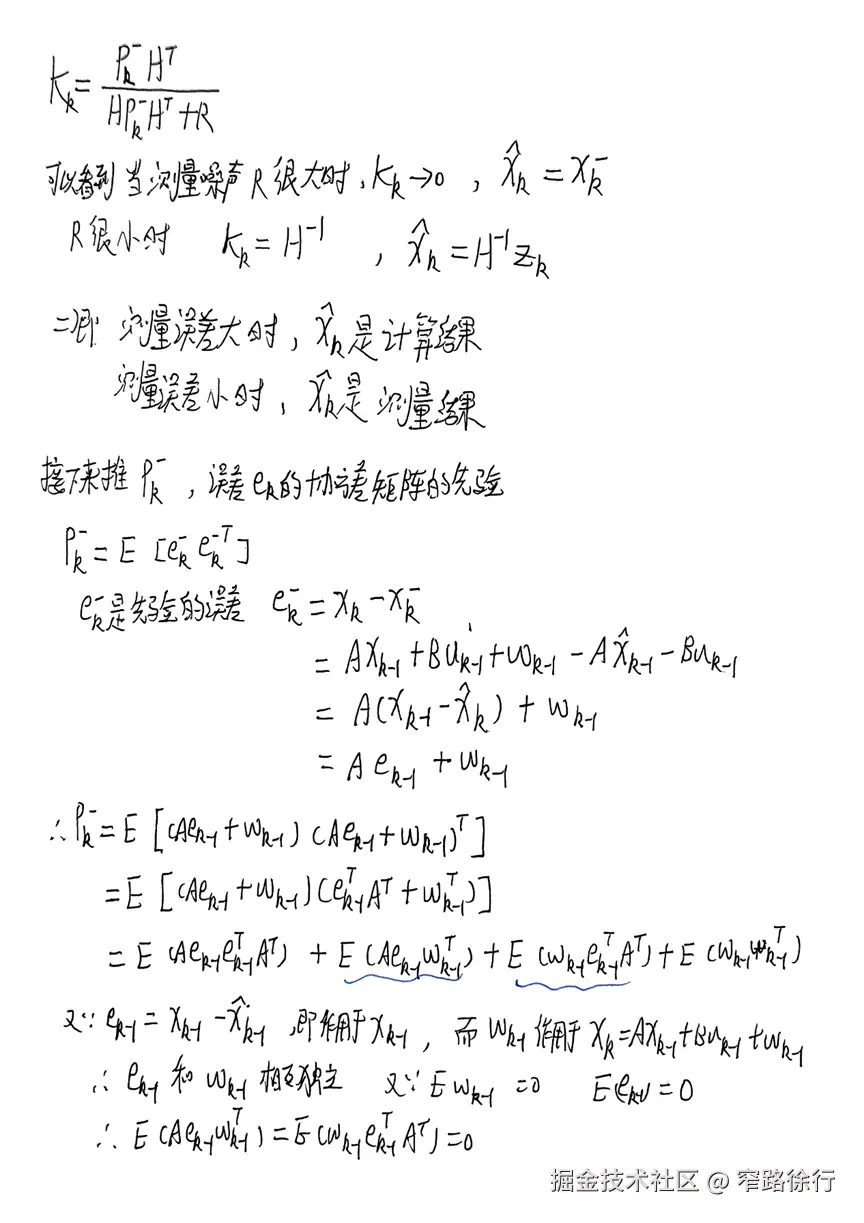 K_k = \frac{P_k^- H^T}{H P_k^- H^T + R}
可以看到 当测量噪声 R 很大时, K_k → 0 , \hat{x}_k = x_k^-
R 很小时 K_k = H^{-1} , \hat{x}_k = H^{-1} z_k
二即 测量误差大时, \hat{x}_k 是计算结果
测量误差小时, \hat{x}_k 是 测量结果
接下来推 P_k^- , 误差 e_k 的协方差矩阵的先验
P_k^- = E [e_k^- e_k^{-T}]
e_k^- 是先验的误差 e_k^- = x_k - x_k^-
= A x_{k-1} + B u_{k-1} + w_{k-1} - A \hat{x}_{k-1} - B u_{k-1}
= A(x_{k-1} - \hat{x}_k) + w_{k-1}
= A e_{k-1} + w_{k-1}
∴ P_k^- = E [(A e_{k-1} + w_{k-1}) (A e_{k-1} + w_{k-1})^T]
= E [(A e_{k-1} + w_{k-1}) (e_{k-1}^T A^T + w_{k-1}^T)]
= E (A e_{k-1} e_{k-1}^T A^T) + E (A e_{k-1} w_{k-1}^T) + E (w_{k-1} e_{k-1}^T A^T) + E (w_{k-1} w_{k-1}^T)
又∵ e_{k-1} = x_{k-1} - \hat{x}_{k-1} , 即作用于 x_{k-1} , 而 w_{k-1} 作用于 x_k = A x_{k-1} + B u_{k-1} + w_{k-1}
∴ e_{k-1} 和 w_{k-1} 相互独立 又∵ E w_{k-1} = 0 E(e_{k-1}) = 0
∴ E (A e_{k-1} w_{k-1}^T) = E (w_{k-1} e_{k-1}^T A^T) = 0
掘金技术社区 @ 窄路徐行